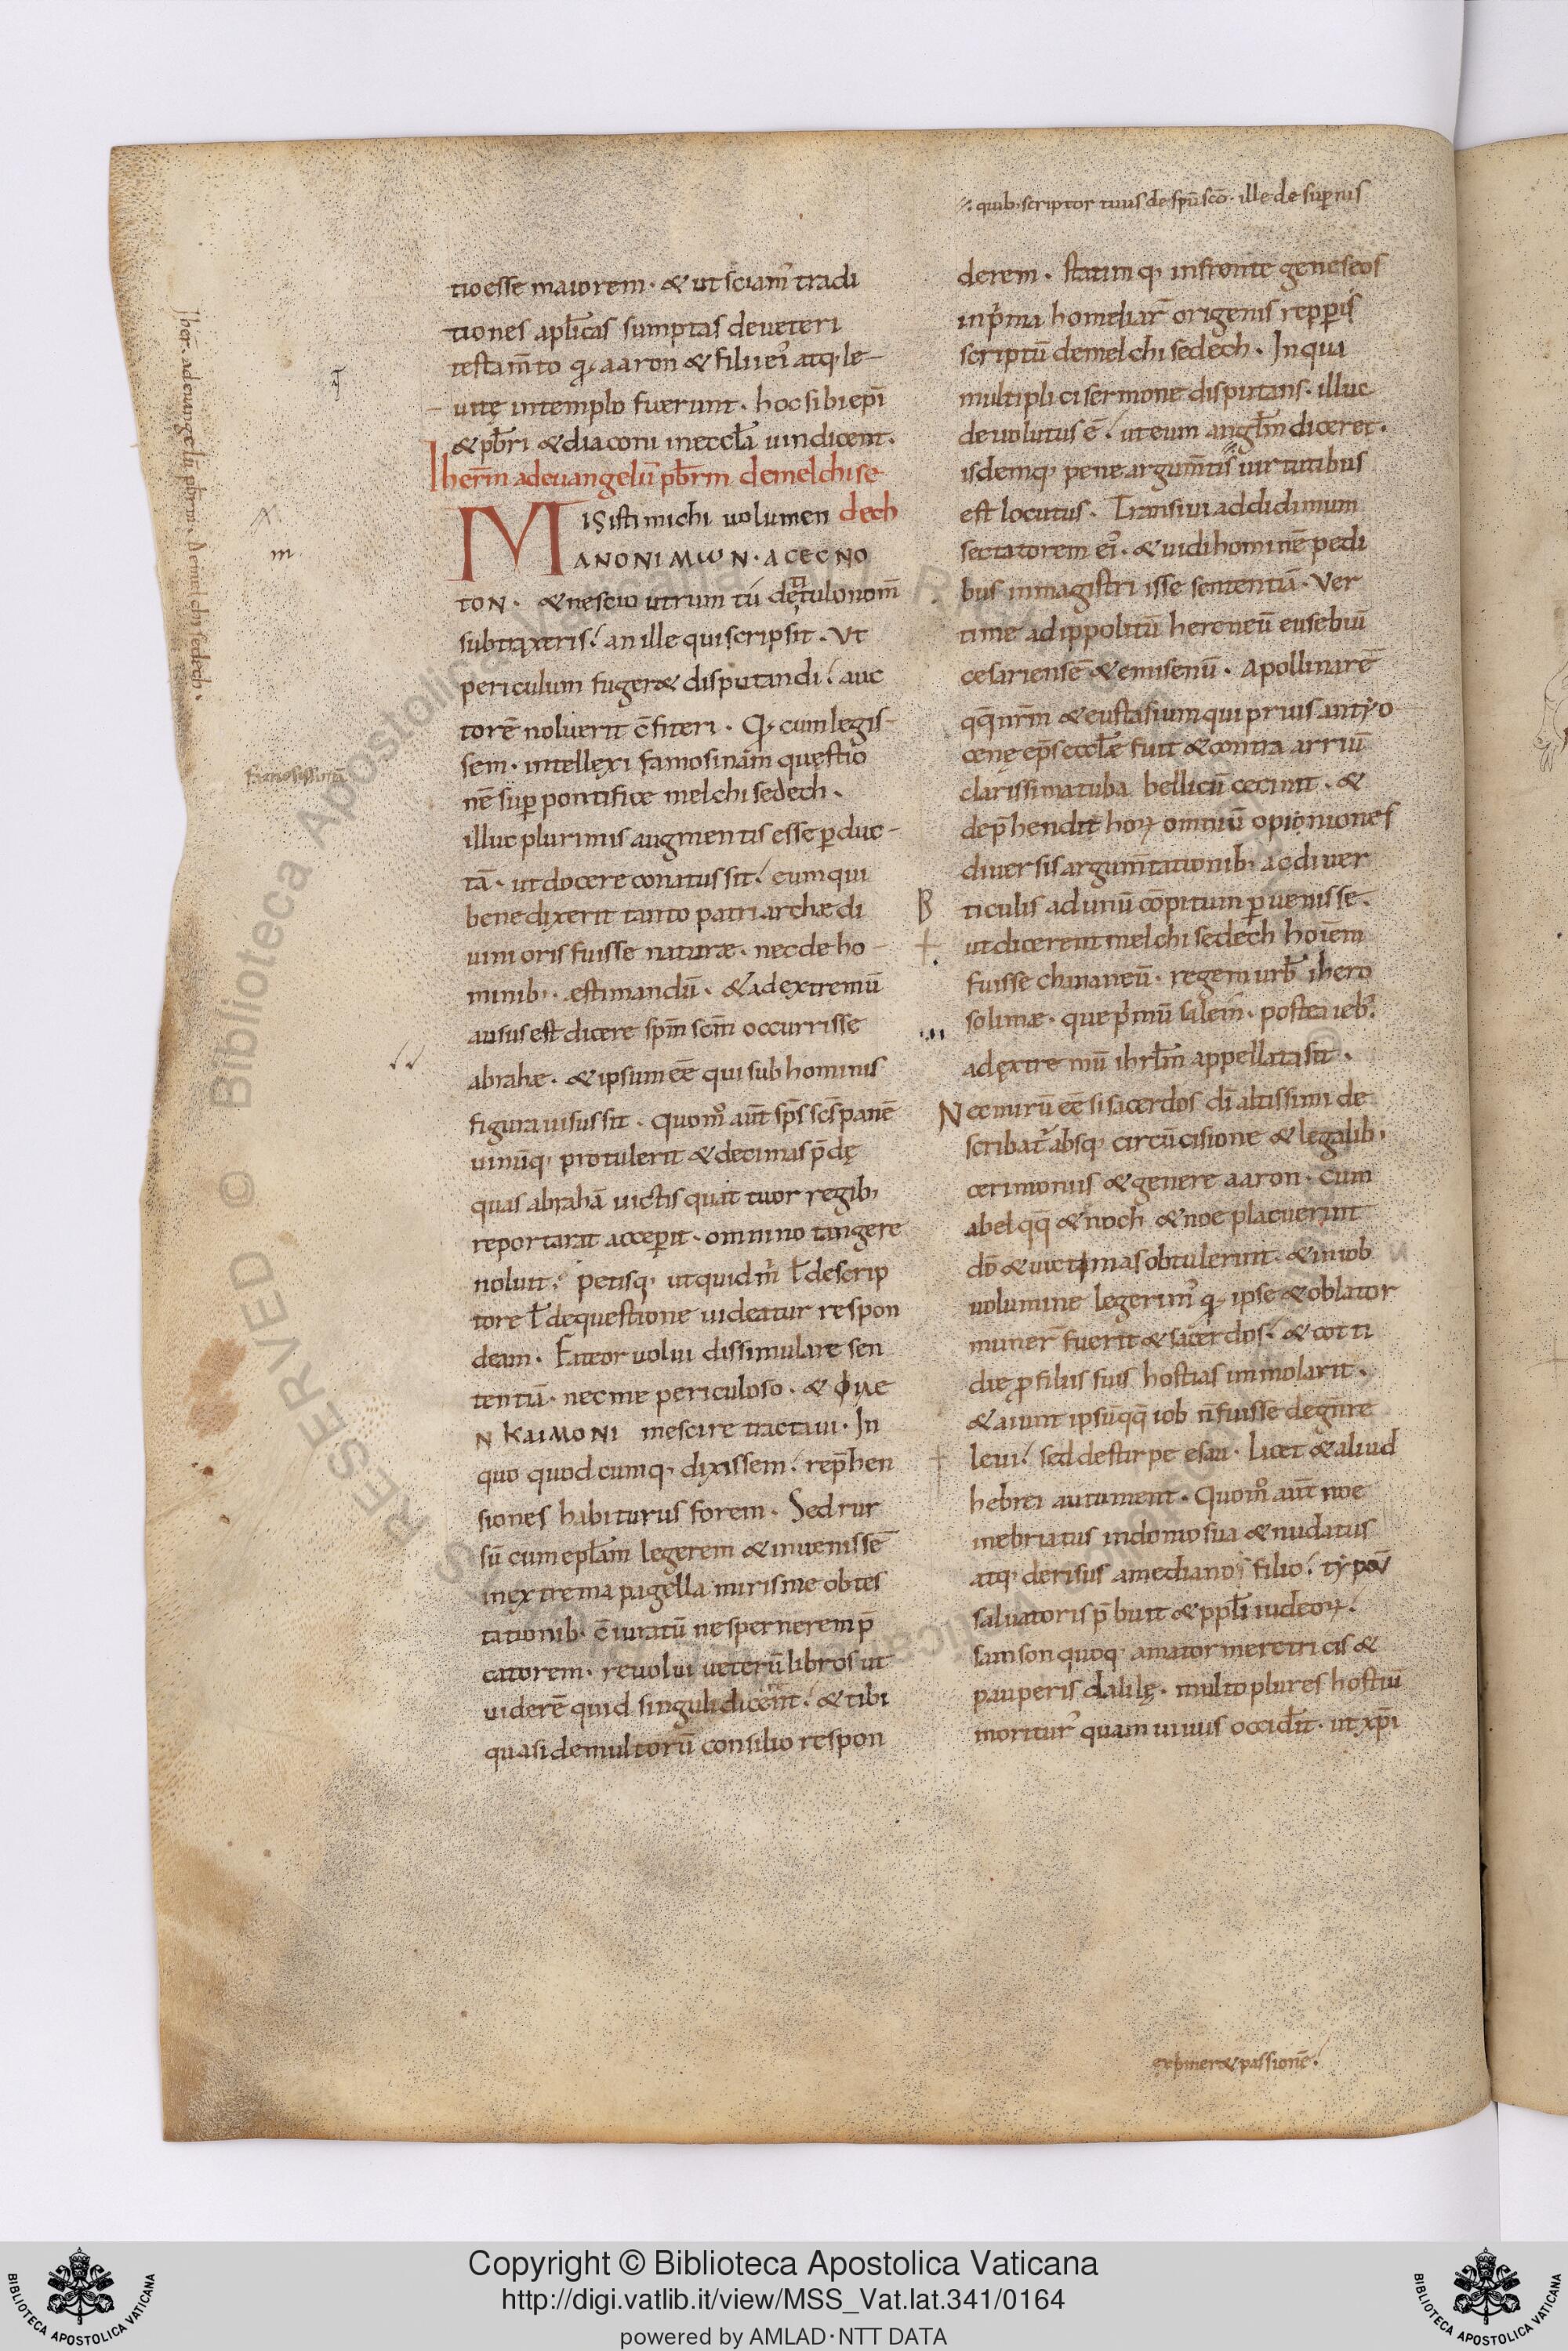 ⁖ quib; scriptor tuus de spū scō. ille de supernis
tio esse maiorem. & ut sciam᾽ tradi
tiones apl̄icas sumptas de ueteri
testam̄to q; aaron & filii ei᾽ atq; le-
uitę in templo fuerunt. hoc sibi ep̄i
& pb̄ri & diaconi in eccl̄a uindicent.
Iher̄m ad euangelū pb̄rm de melchise
dech
MISisti michi volumen
ANONIMωN. ACECNO
TON. & nescio utrum tu de titulo nom̄
subtraxeris. an ille qui scripsit. Vt
periculum fuger& disputandi. auc
torē noluerit c̄fiteri. Q; cum legis-
sem. intellexi famosinam quęstio
nē sup pontifice melchisedech.
illuc plurimis augmentis esse pduc-
tā. ut docere conatus sit. eum qui
benedixerit tanto patriarchæ di
uinioris fuisse naturæ. nec de ho-
minib;. æstimandū. & ad extremū
ausus est dicere spm̄ scm̄ occurrisse
abrahæ. & ipsum eē qui sub hominis
figura uisus sit. Quom̊ aut̄ sp̄s sc̄s panē
uinūq; protulerit & decimas p̄dę
quas abrahā uictis quattuor regib;
reportarat acceperit. omnino tangere
noluit. Petisq; ut quid m̄ ł de scrip
tore ł de quęstione uideatur respon
deam. Fateor uolui dissimulare sen
tentiā. nec me periculoso. & ΦΙΛΕ
N ΚΑΙΜΟΝΙ inescire tractaui. In
quo quodcumq; dixissem. rep̄hen
siones habiturus forem. Sed rur
sū cum epl̄am legerem & inuenissē
in extrema pagella miris me obtes
tationib; c̄iuratū ne spernerem p̄
catorem. reuolui ueterū libros ut
uiderē quid singuli dicerent. & tibi
quasi de multorū consilio respon
derem. Statimq; in fronte geneseos
in p̄ma homeliar̄ origenis repperis
scriptū de melchisedech. In qua
multiplici sermone disputans. illuc
deuolutus ē. ut eum angl̄m diceret.
isdemq; pene argum̄tis uirtutibus
est locutus. Transiui ad didimum
sectatorem ei᾽. & uidi hominē pedi
bus in magistri isse sententiā. Ver
ti me ad ippolitū hereneū eusebiū
cesariensē & emisenū. Apollinarē
qq̄ nr̄m & eustasium qui prius antyo
cenę ep̄s eccl̄æ fuit & contra arriū
clarissima tuba bellicū cecinit. &
dep̄hendit hoꝝ omniū opioniones
diuersis argum̄tationib; ac diuer
ticulis ad unū cōpitum puenisse.
ut dicerent melchisedech hoīem
fuisse chananeū. regem urb̄ ihero
solimæ. que p̄mū salem. postea ieb᾽.
ad extremū ihrl̄m appellata sit.
Nec mirū eē si sacerdos dī altissimi de
scribat᾽ absq; circūcisione & legalib;
cerimoniis & genere aaron. cum
abel qq̄ & enoch & noe placuerint
dō & uictimas obtulerint. & in iob
uolumine legerim᾽ q; ipse & oblator
muner̄ fuerit & sacerdos. & cotti
die p filiis suis hostias immolarit.
& aiunt ipsū qq̄ iob n̄ fuisse de gen̄re
leui. sed de stirpe esau. Licet & aliud
hebrei autument. Quom̊ aut̄ noe
inebriatus in domo sua & nudatus
atq; derisus a mediano filio. typoū
saluatoris p̄buit & ppl̄i iudeoꝝ.
Samson quoq; amator meretricis &
pauperis dalilę. multo plures hostiū
moritur᾽ quam uiuus occidit. ut xp̄i
exp̄mer& passionē.
Iher. ad euangelū pb̄rm. De melchisedech.
m
famosissimā
B
Copyright © Biblioteca Apostolica Vaticana
http://digi.vatlib.it/view/MSS_Vat.lat.341/0164
powered by AMLAD·NTT DATA
BIBLIOTECA APOSTOLICA VATICANA
BIBLIOTECA APOSTOLICA VATICANA